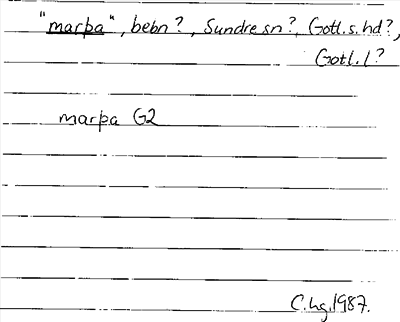 "marþa", bebn?, Sundre sn?, Gotl.s.hd?,
Gotl.l?
marþa G2
C.hg.1987.